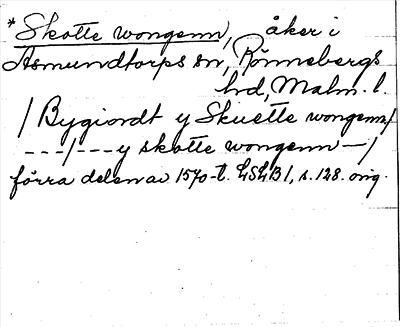 *Skotte wongenn, åker i
Asmundtorps sn, Rönnebergs
hd, Malm. l.
/ Bygiordt y Skuette wongenn/
---/---y skotte wongenn —/
förra delen av 1570-t. LSLB1, s. 128. orig.